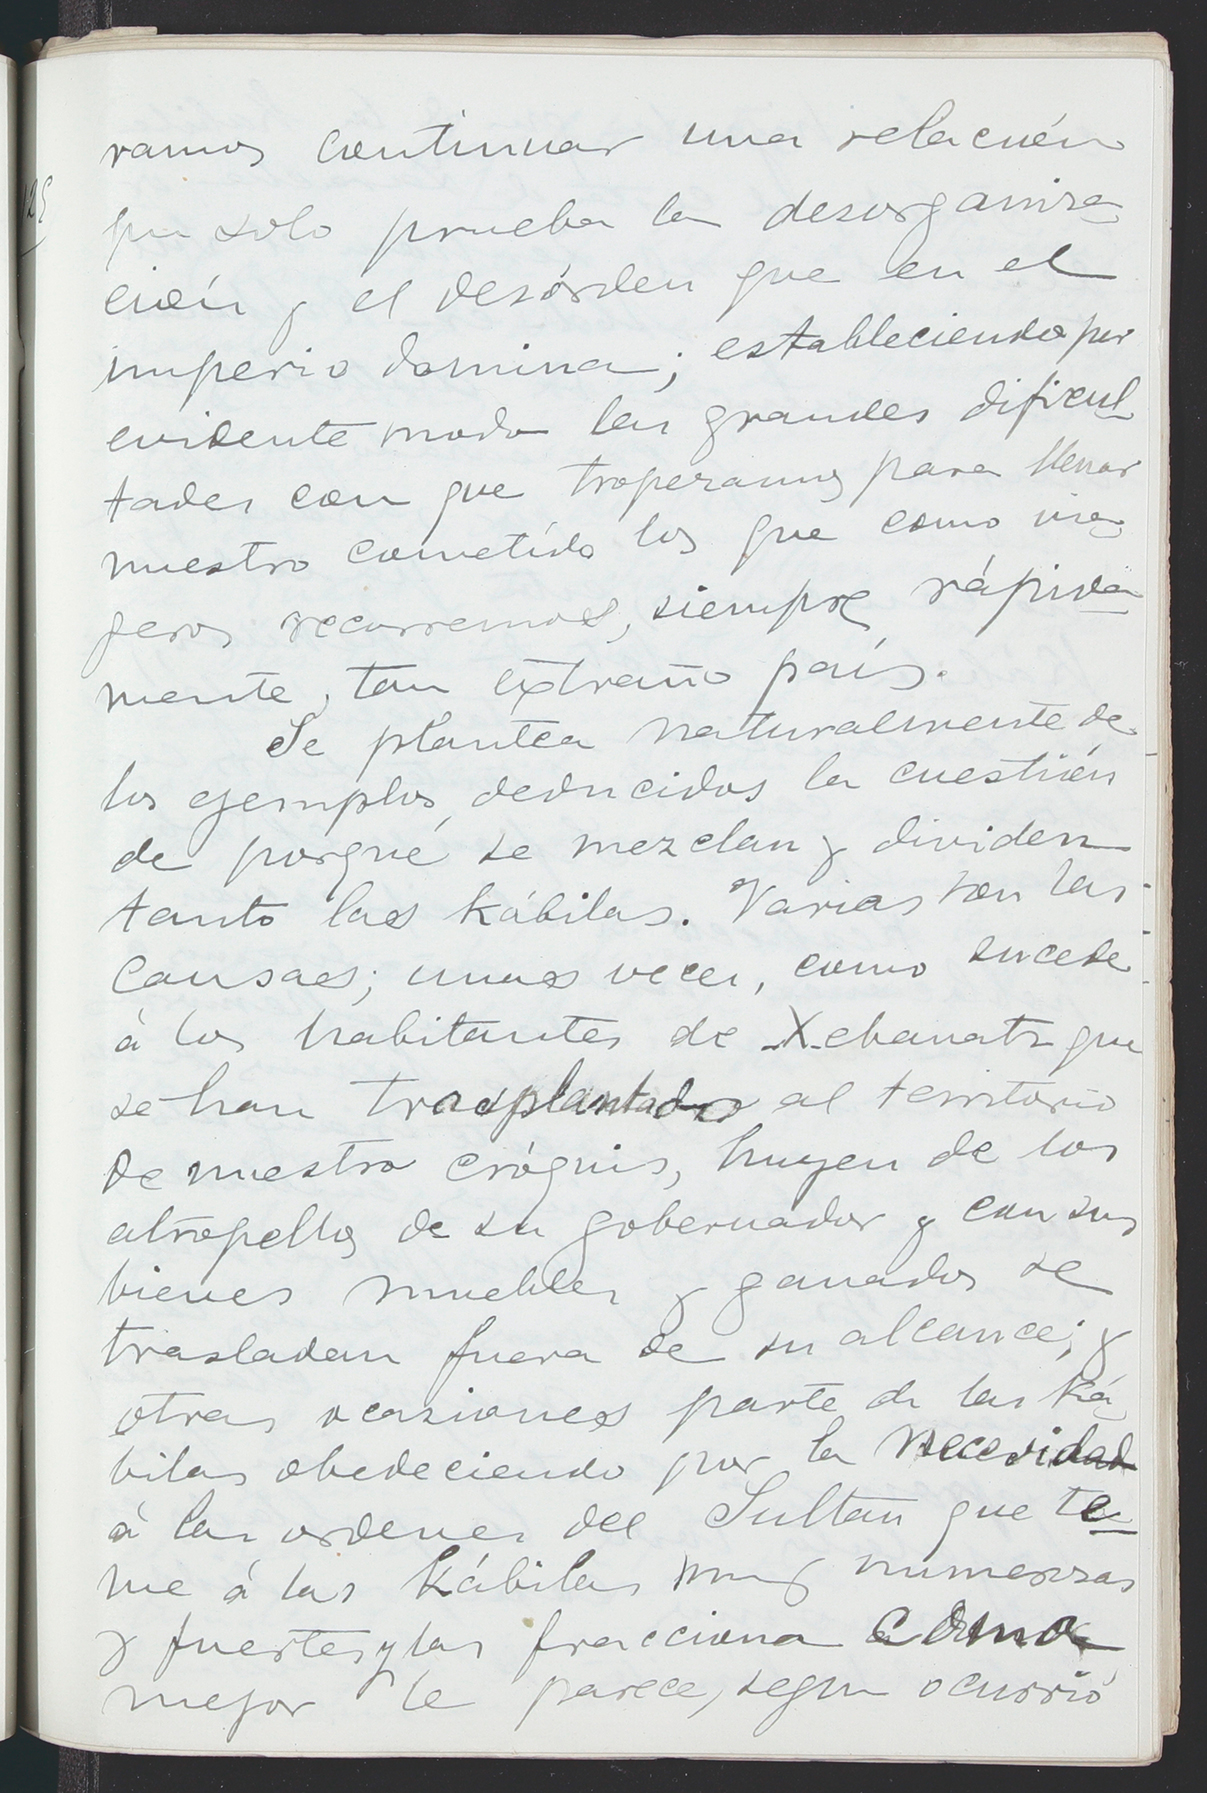 ramos continuar una relación
que solo prueba la desorganiza-
ción y el desórden que en el
imperio domina; estableciendo por
evidente modo las grandes dificul-
tades con que tropezamos para llenar
nuestro cometido los que como via-
geros recorremos, siempre rápida-
mente, tan extraño país.
Se plantea naturalmente de
los ejemplos deducidos la cuestión
de porqué se mezclan y dividen
tanto las kábilas. Varias son las
causas; unas veces, como sucede
á los habitantes de Xebanatz que
se han trasplantado al territorio
de nuestro cróquis, huyen de los
atropellos de su gobernador y con sus
bienes muebles y ganados se
trasladan fuera de su alcance; y
otras ocasiones parte de las Ká-
bilas obedeciendo por la necesidad
á las ordenes del Sultan que te-
me á las Kábilas muy numerosas
y fuertes y las fracciona como
mejor le parece, segun ocurrió